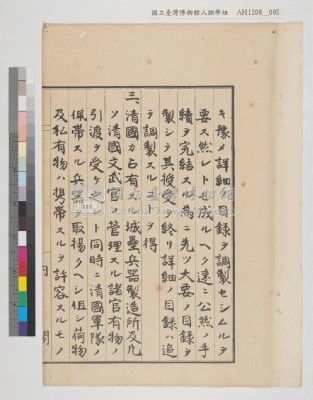 國立臺灣博物館人類學組 AH1208_005
キ豫メ詳細ノ目録ヲ調製セシムルヲ
要ス然レトモ成ルヘク速ニ公然ノ手
續ヲ完結スル為ニ先ツ大要ノ目録ヲ
製シテ其授受ヲ終リ詳細ノ目録ハ追
テ調製スルコトヲ得
三、清國カ占有スル城壘兵器製造所及凡
ソ清國文武官ノ管理スル諸官有物ノ
引渡ヲ受ケタルト同時ニ清國軍隊ノ
佩帶スル兵器ヲ取揚クヘシ但シ荷物
及私有物ハ携帶スルヲ許容スルモノ